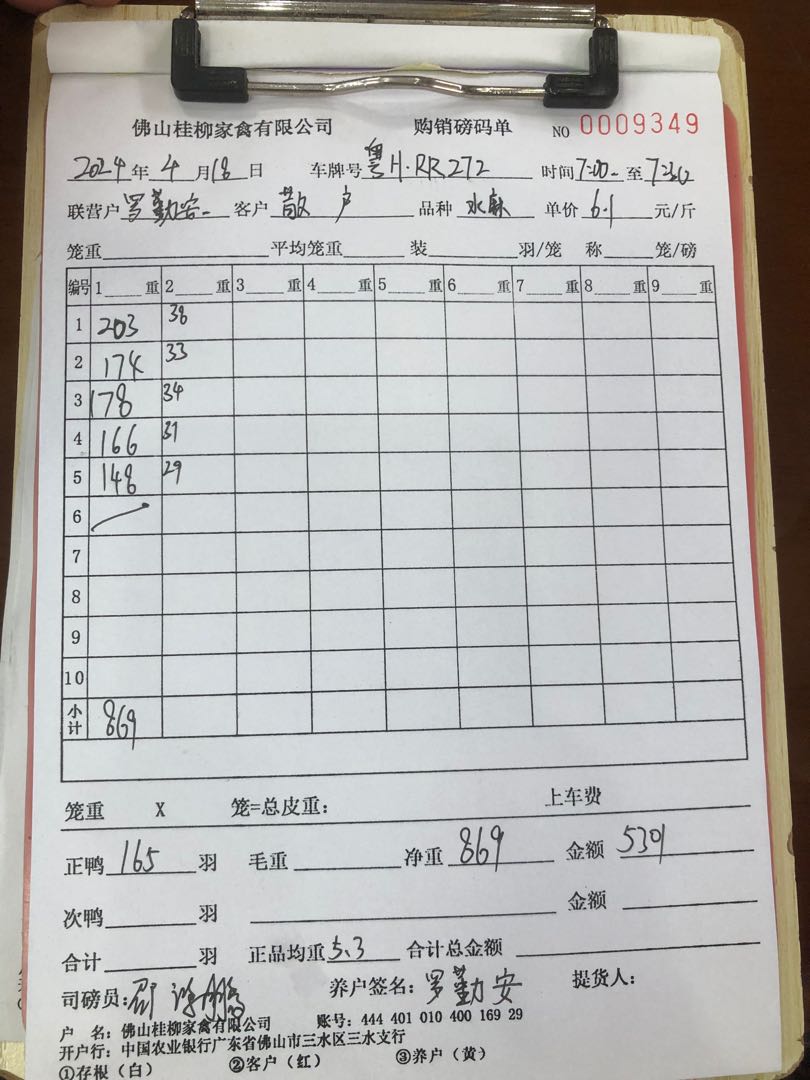 佛山桂柳家禽有限公司 购销磅码单 NO 0009349
2024年4月18日 车牌号粤H·RR272 时间7:00至7:30
联营户罗勤安 客户散户 品种水麻 单价6.1元/斤
笼重 平均笼重 装 羽/笼 称 笼/磅
编号 1 重 2 重 3 重 4 重 5 重 6 重 7 重 8 重 9 重
1 203 38
2 174 33
3 178 34
4 166 31
5 148 29
6
7
8
9
10
小计 869
笼重 X 笼=总皮重: 上车费
正鸭165羽 毛重 净重869 金额5301
次鸭 羽 金额
合计 羽 正品均重5.3 合计总金额
司磅员: 养户签名:罗勤安 提货人:
户 名:佛山桂柳家禽有限公司 账号:444 401 010 400 169 29
开户行:中国农业银行广东省佛山市三水区三水支行
①存根(白) ②客户(红) ③养户(黄)